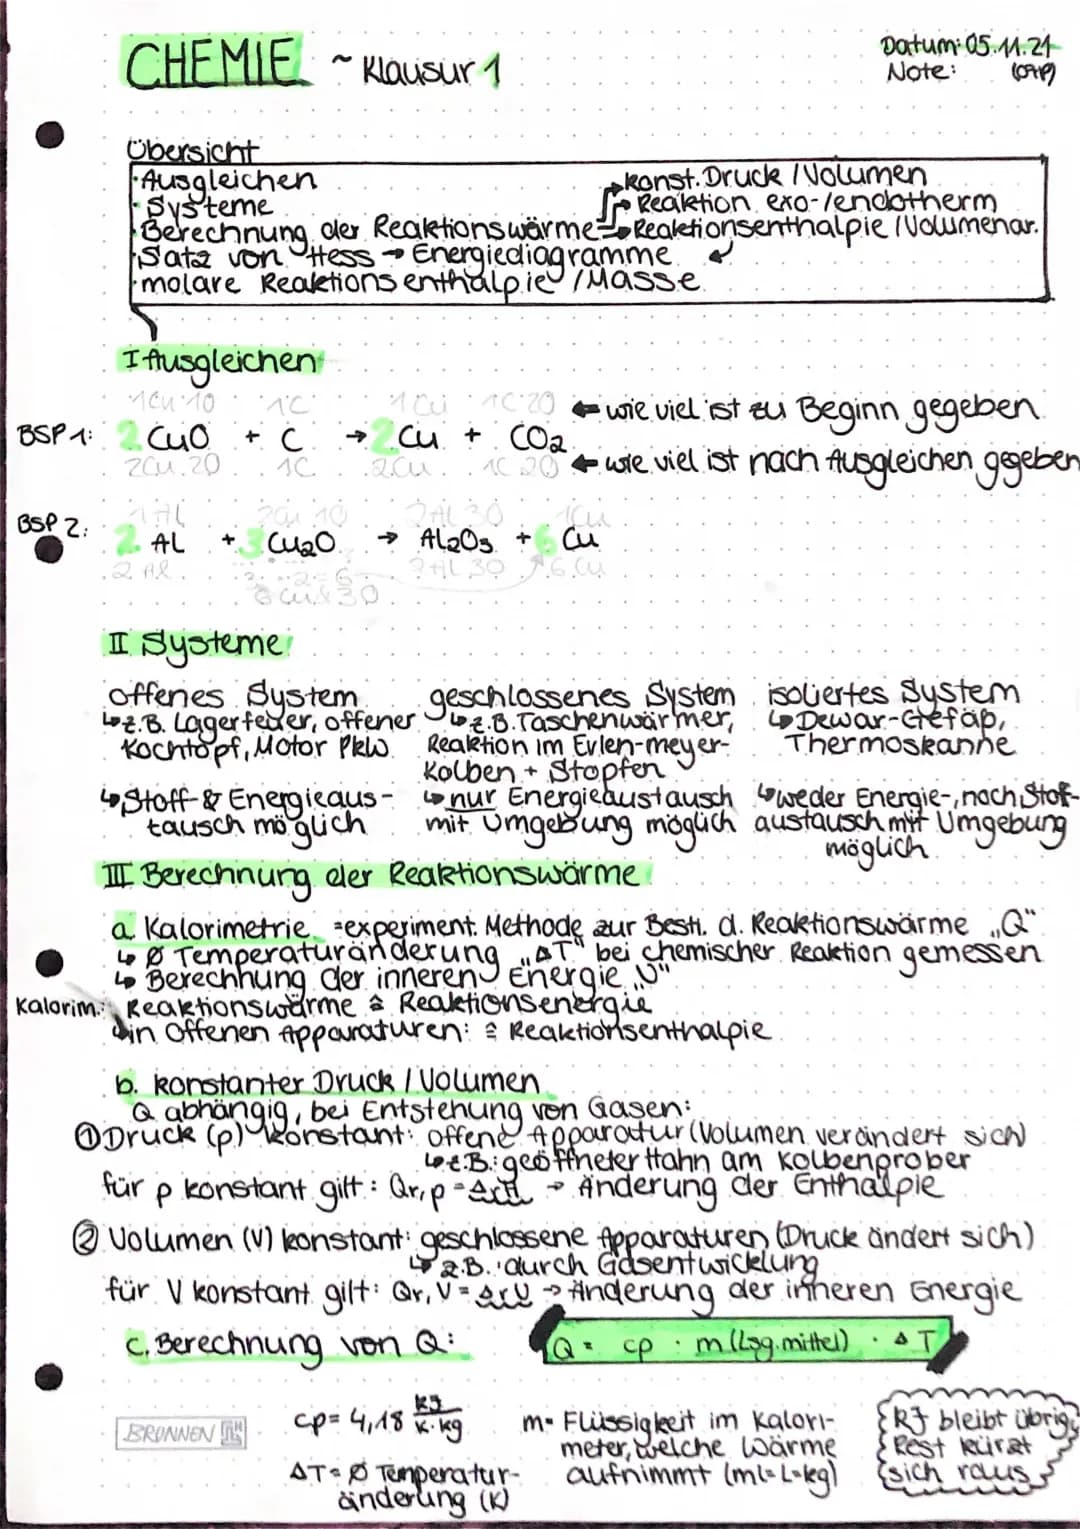 CHEMIE ~ Klausur 1
Datum: 05.11.21
Note:
Übersicht
· Ausgleichen
→ konst. Druck / Volumen
· Systeme
→ Reaktion exo-/endotherm
· Berechnung der Reaktionswärme → Reaktionsenthalpie / Volumenar.
· Satz von Hess → Energiediagramme
· molare Reaktionsenthalpie / Masse
I Ausgleichen
1Cu 1O 1C 1Cu 1C 2O ← wie viel ist zu Beginn gegeben
BSP 1: 2 CuO + C → 2 Cu + CO2
2Cu 2O 1C 2Cu 1C 2O ← wie viel ist nach Ausgleichen gegeben
1Al 2Cu 1O 2Al 3O 1Cu
BSP 2: 2 AL + 3 Cu2O → Al2O3 + 6 Cu
2 Al 3·2=6 2Al 3O 6 Cu
6 Cu & 3O
II Systeme
offenes System geschlossenes System isoliertes System
↳ z.B. Lagerfeuer, offener ↳ z.B. Taschenwärmer, ↳ Dewar-Gefäß,
Kochtopf, Motor PKW Reaktion im Erlen-meyer- Thermoskanne
Kolben + Stopfen
↳ Stoff- & Energieaus- ↳ nur Energieaustausch ↳ weder Energie-, noch Stoff-
tausch möglich mit Umgebung möglich austausch mit Umgebung
möglich
III Berechnung der Reaktionswärme
a. Kalorimetrie =experiment. Methode zur Besti. d. Reaktionswärme „Q"
↳ Ø Temperaturänderung „ΔT" bei chemischer Reaktion gemessen
↳ Berechnung der inneren Energie „U"
Kalorim.: Reaktionswärme ≙ Reaktionsenergie
↳ in offenen Apparaturen: ≙ Reaktionsenthalpie
b. konstanter Druck / Volumen
Q abhängig, bei Entstehung von Gasen:
① Druck (p) konstant: offene Apparatur (Volumen verändert sich)
↳ z.B.: geöffneter Hahn am Kolbenprober
für p konstant gilt: Qr,p = ΔrH → Änderung der Enthalpie
② Volumen (V) konstant: geschlossene Apparaturen (Druck ändert sich)
↳ z.B.: durch Gasentwicklung
für V konstant gilt: Qr,V = ΔrU → Änderung der inneren Energie
c. Berechnung von Q: Q = cp · m (Lsg.mittel) · ΔT
cp = 4,18 kJ/K·kg m = Flüssigkeit im Kalori-
meter, welche Wärme
aufnimmt (ml=L=kg)
ΔT = Ø Temperatur-
änderung (K)
KJ bleibt übrig,
Rest kürzt
sich raus
BRUNNEN